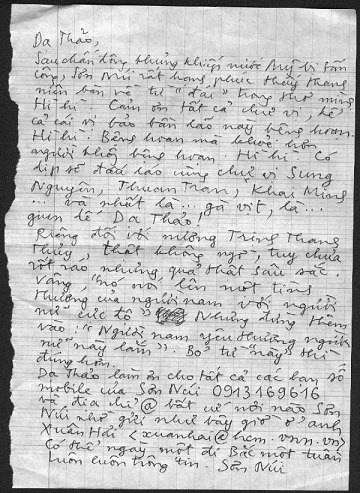 Da Thảo,
Sau chấn động khủng khiếp nước Mỹ bị tấn
công, Sơn Núi rất hạnh phúc thấy thang
niên bàn về từ "đại" trong thơ mình
Hi hi. Cảm ơn tất cả chư vị, kể
cả cái vị bảo bần lão này bông hoan.
Hi hi. Bông hoan mà khoẻ hơn
người không bông hoan. Hi hi. Có
dịp sẽ đấu láo cùng chư vị Sung
Nguyên, Thuan Tran, Khai Minh
... và nhất là ... gà vịt, là ...
quên dê Da Thảo!
Riêng đối với nường Trịnh Thanh
Thủy, thật không ngờ, tuy chưa
rốt ráo nhưng quả thật sâu sắc.
Vâng "nó nói lên một tình
thương của người nam với người
nữ cực độ" Nhưng đừng thêm
vào: "Người nam yêu thương người
nữ này lắm". Bỏ từ "này" thì
đúng hơn.
Da Thảo làm ơn cho tất cả các bạn số
mobile của Sơn Núi 0913169616
và địa chỉ @ bất cứ nơi nào Sơn
Núi nhờ gửi như bây giờ ở anh
Xuân Hải <xuanhai@hcm.vnn.vn>
Có thể ngay mai đi Bắc một tuần
Luôn luôn trong tin. Sơn Núi